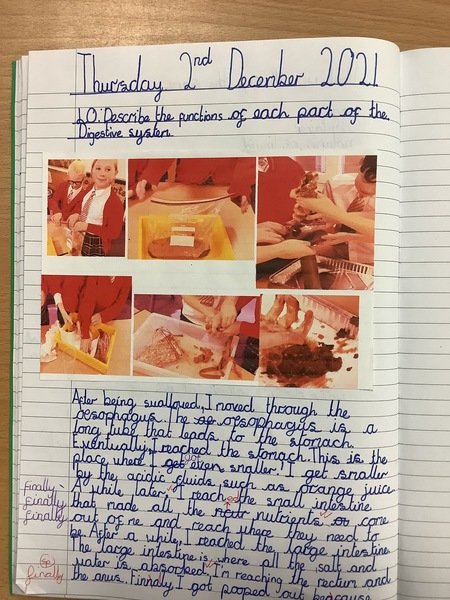 Thursday 2nd December 2021
LO: Describe the functions of each part of the
Digestive system.
After being swallowed, I moved through the
oesophagus. The oesophagus is a
long tube that leads to the stomach.
Eventually, I reached the stomach. This is the
place where I got even smaller. I get smaller
by the acidic fluids such as orange juice.
A while later, I reached the small intestine
that made all the nutrients come
out of me and reach where they need to
be. After a while, I reached the large intestine.
The large intestine is where all the salt and
water is absorbed. I'm reaching the rectum and
the anus. Finnaly I got pooped out because
finally
finally
finally
sp
finally